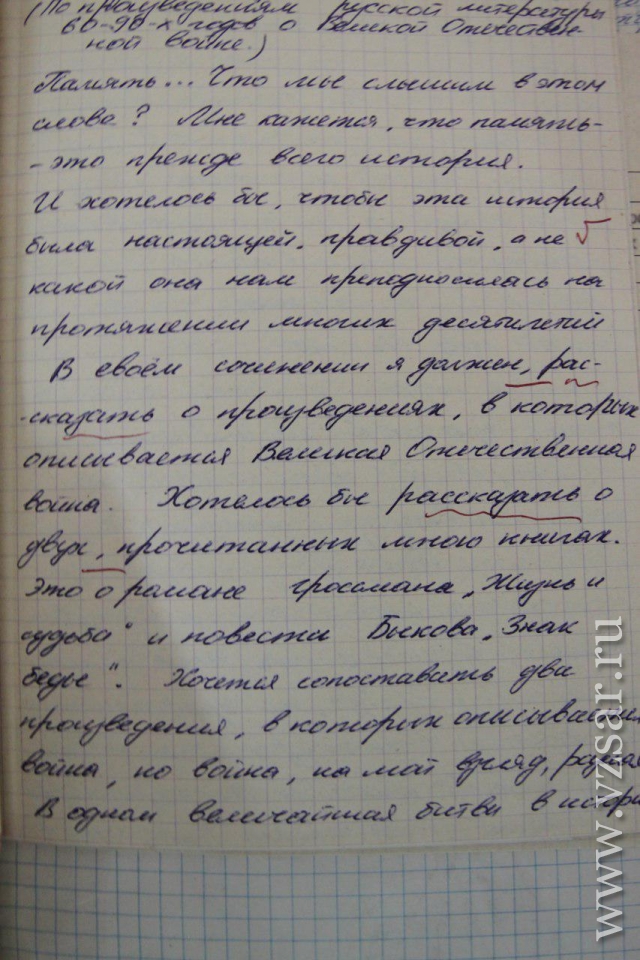 (По произведениям русской литературы
60-90-х годов о Великой Отечествен-
ной войне.)
Память... Что мы слышим в этом
слове? Мне кажется, что память-
-это прежде всего история.
И хотелось бы, чтобы эта история
была настоящей, правдивой, а не
какой она нам преподносилась на
протяжении многих десятилетий
В своём сочинении я должен, рас-
-сказать о произведениях, в которых
описывается Великая Отечественная
война. Хотелось бы рассказать о
двух, прочитанных мною книгах.
Это о романе гроссмана „Жизнь и
судьба" и повести Быкова „Знак
беды". Хочется сопоставить два
произведения, в которых описывается
война, но война, на мой взгляд, разная
В одном величайшая битва в
www.vzsar.ru